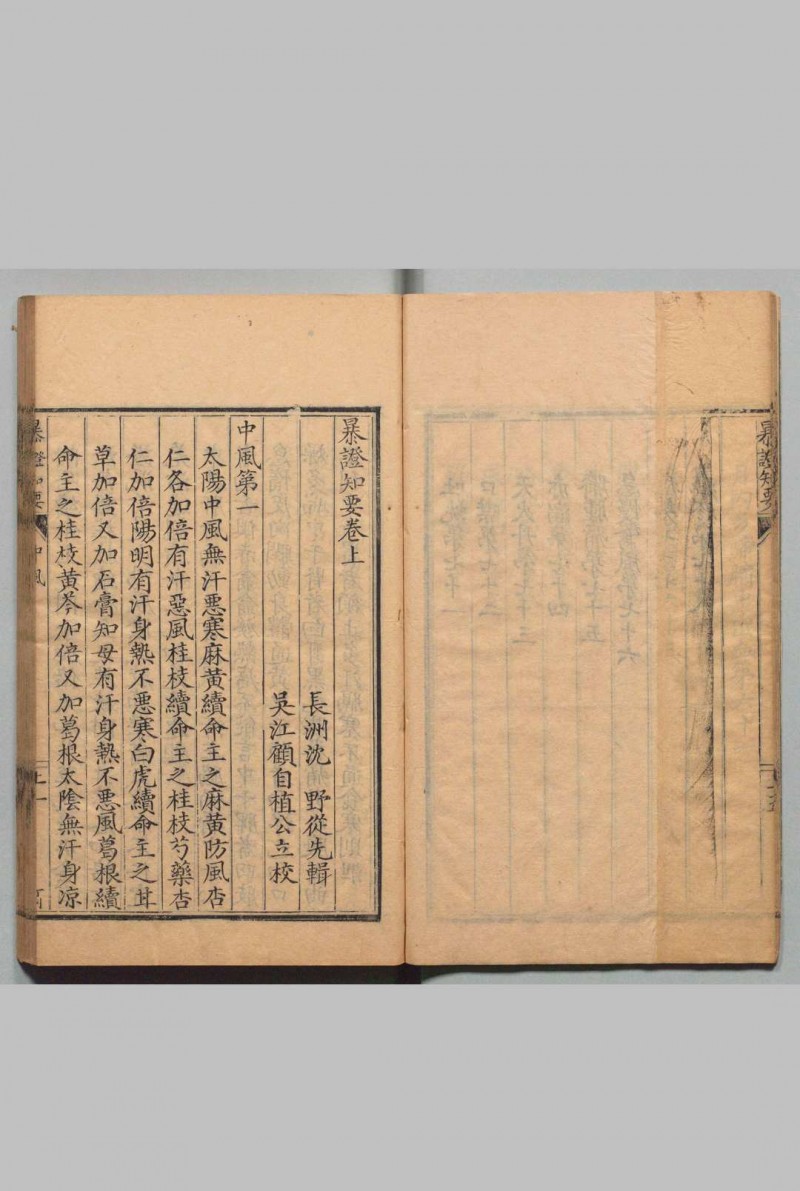 暴證知要
暴證知要卷上
長洲沈野從先輯
吳江顧自植公立校
中風第一
太陽中風無汗惡寒麻黃續命主之麻黃防風杏
仁各加倍有汗惡風桂枝續命主之桂枝芍藥杏
仁加倍陽明有汗身熱不惡寒白虎續命主之甘
草加倍又加石膏知母有汗身熱不惡風葛根續
命主之桂枝黃芩加倍又加葛根太陰無汗身凉
暴證知要 中風 上一